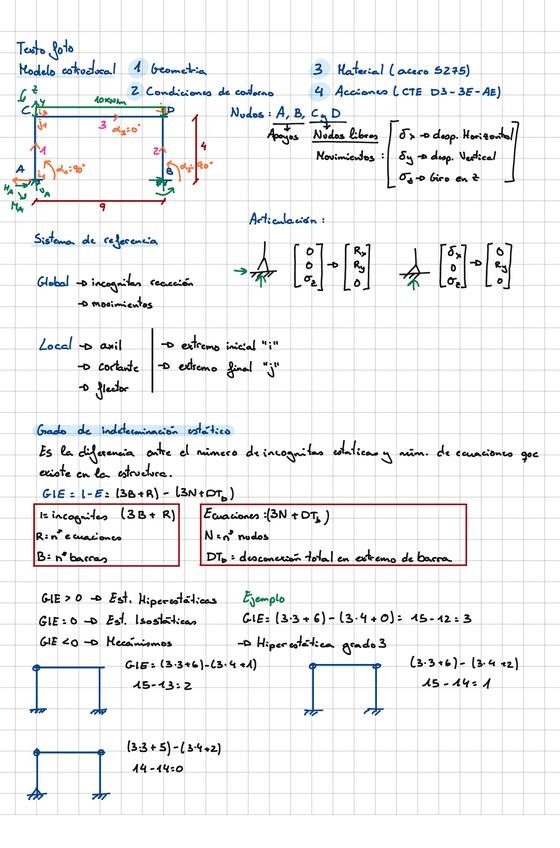 Texto foto
Modelo estructural 1 Geometria 3 Material (acero S275)
2 Condiciones de contorno 4 Acciones (CTE D3-3E-AE)
Nudos: A, B, C y D
Apoyos Nudos libres
Movimientos: δx → desp. Horizontal
δy → desp. Vertical
σz → Giro en z
z
y
10KN/m
C
D
i3
j1
3
α3=0°
1
α1=90°
2
90°
A
B
i1
HA
VA
MA
4
9
Sistema de referencia
Articulación:
Global → incognitas reacción
→ movimientos
0 0 σz → Rx Ry 0
δx 0 σz → 0 Ry 0
Local → axil → extremo inicial "i"
→ cortante → extremo final "j"
→ flector
Grado de indeterminación estático
Es la diferencia entre el número de incognitas estaticas y núm. de ecuaciones que
existe en la estructura.
GIE = I-E = (3B+R) - (3N+DTb)
I=incognitas (3B+R)
R=nº ecuaciones
B=nº barras
Ecuaciones:(3N+DTb)
N=nº nudos
DTb = desconexión total en extremo de barra
GIE > 0 → Est. Hiperestáticas
GIE = 0 → Est. Isostáticas
GIE < 0 → Mecánismos
Ejemplo
GIE = (3·3+6) - (3·4+0) = 15-12 = 3
→ Hiperestática grado 3
GIE = (3·3+6)-(3·4+1)
15-13=2
(3·3+6) - (3·4+2)
15-14=1
(3·3+5)-(3·4+2)
14-14=0